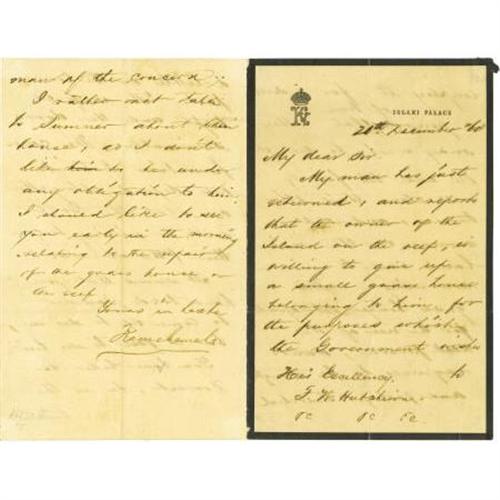 IOLANI PALACE
20th December /68
My dear Sir.
My man has just
returned, and reports
that the owner of the
Island on the reef, is
willing to give up
a small grass house
belonging to him, for
the purposes which
the Government wishes
to
His Excellency,
F. W. Hutchison
&c &c &c
man of the concord
I rather not
to Sumner about their
house, as I don't
like him to be under
any obligation to him.
I should like to see
you early in the morning
relating to the repairs
of the grass house on
the reef
Yours in haste
Kamehameha